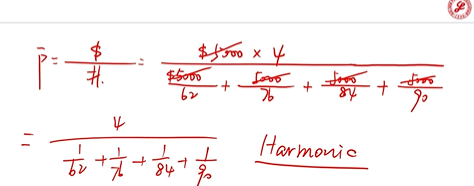 P̄ = $/#. = ($5000 × 4)/($5000/62 + 5000/76 + 5000/84 + 5000/90)
= 4/(1/62 + 1/76 + 1/84 + 1/90) Harmonic